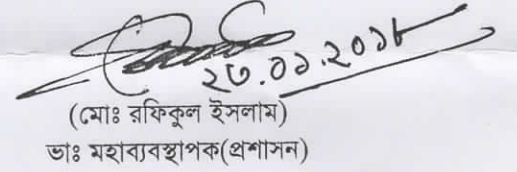 ২৩.০১.২০১৮
(মোঃ রফিকুল ইসলাম)
ভাঃ মহাব্যবস্থাপক(প্রশাসন)